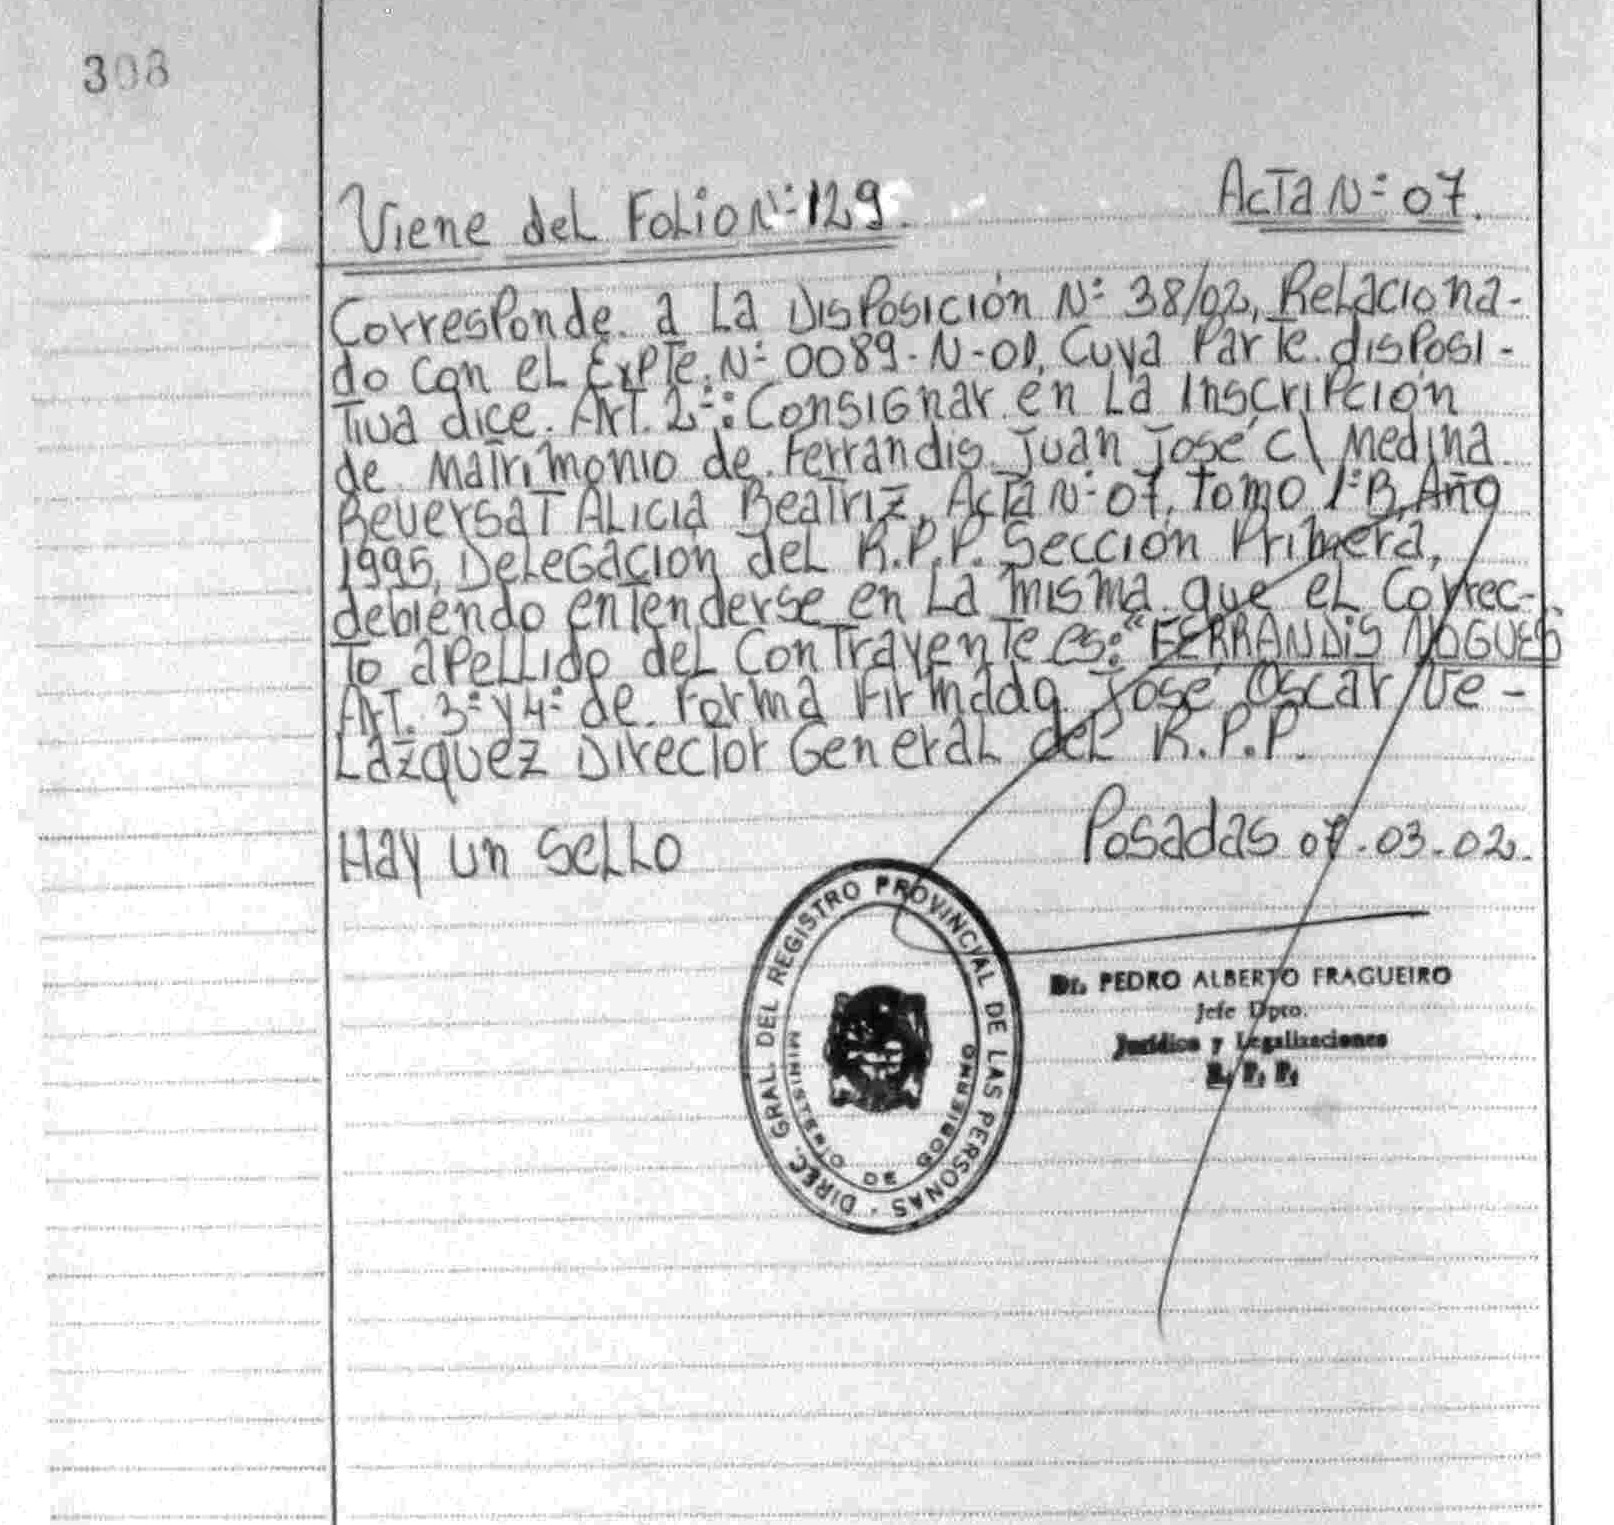 308
Viene del Folio N°129.
Acta N° 07.
Corresponde a la Disposición N° 38/02, Relaciona-
do con el Expte. N° 0089-N-01, Cuya Parte disposi-
tiva dice. Art. 2°: Consignar en la Inscripción
de Matrimonio de Ferrandis Juan José c\ Medina
Reversat Alicia Beatriz, Acta N° 07, Tomo 1°B, Año
1995, Delegación del R.P.P. Sección Primera,
debiendo entenderse en la misma que el Correc-
to apellido del Contrayente es: "FERRANDIS NOGUES
Art. 3° y 4° de Forma Firmado José Oscar Ve-
lázquez Director General del R.P.P.
Hay un sello
Posadas 07-03-02.
DIREC. GRAL. DEL REGISTRO PROVINCIAL DE LAS PERSONAS -
MINISTERIO DE GOBIERNO
Dr. PEDRO ALBERTO FRAGUEIRO
Jefe Dpto.
Jurídico y Legalizaciones
R. P. P.